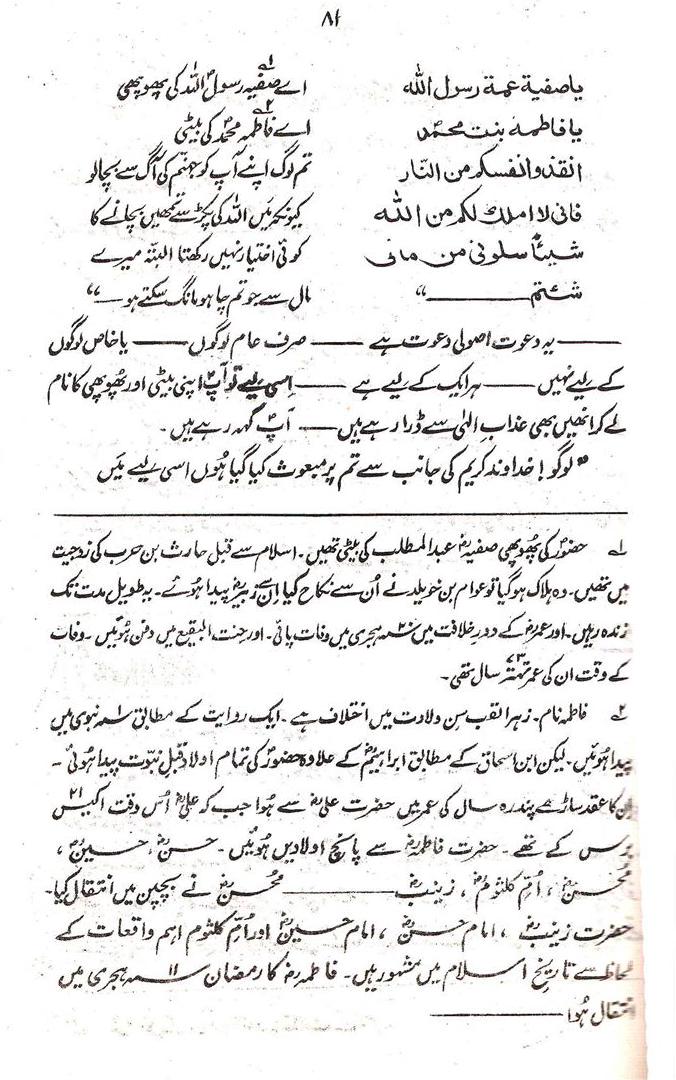 ۸۱
یا صفیة عمة رسول الله اے صفیہؓ۱ رسول اللہ کی پھوپھی
یا فاطمه بنت محمدؐ اے فاطمہ۲ محمدؐ کی بیٹی
انقذوا انفسکم من النّار تم لوگ اپنے آپ کو جہنم کی آگ سے بچالو
فانی لا املك لکم من الله کیونکہ میں اللہ کی پکڑ سے تمھیں بچانے کا
شیئاً سلونی من مالی کوئی اختیار نہیں رکھتا البتّہ میرے
شئتم ــــــ “ مال سے جو تم چاہو مانگ سکتے ہو ــ “
ــــــ یہ دعوت اصولی دعوت ہے ــــــ صرف عام لوگوں ــــــ یا خاص لوگوں
کے لیے نہیں ــــــ ہر ایک کے لیے ہے ــــــ اِسی لیے تو آپؐ اپنی بیٹی اور پُھوپھی کا نام
لے کر انھیں بھی عذابِ الٰہی سے ڈرا رہے ہیں ــــــ آپؐ کہہ رہے ہیں۔
”لوگو! خداوند کریم کی جانب سے تم پر مبعوث کیا گیا ہُوں اسی لیے میں
۱ حضورؐ کی پُھوپھی صفیہؓ عبدالمطلب کی بیٹی تھیں۔ اسلام سے قبل حارث بن حرب کی زوجیت
میں تھیں۔ وہ ہلاک ہو گیا تو عوام بن خویلد نے اُن سے نکاح کیا اِن سے زبیرؓ پیدا ہوئے۔ یہ طویل مدت تک
زندہ رہیں۔ اور عمرؓ کے دورِ خلافت میں ۲۰؁ ہجری میں وفات پائی۔ اور جنت البقیع میں دفن ہوئیں۔ وفات
کے وقت ان کی عمر تہتر ۷۳ سال تھی۔
۲ فاطمہ نام۔ زہرا لقب سِن ولادت میں اختلاف ہے۔ ایک روایت کے مطابق ۱؁ نبوی میں
پیدا ہوئیں۔ لیکن ابن اسحاق کے مطابق ابراہیمؓ کے علاوہ حضورؐ کی تمام اولاد قبل نبوّت پیدا ہوئی۔
اِن کا عقد ساڑھے پندرہ سال کی عمر میں حضرت علیؓ سے ہوا جب کہ علیؓ اُس وقت اکیس ۲۱
برس کے تھے۔ حضرت فاطمہؓ سے پانچ اولادیں ہوئیں۔ حسنؓ، حسینؓ،
محسنؓ، اُمّ کلثومؓ، زینبؓ ــــــ محسنؓ نے بچپن میں انتقال کیا۔
حضرت زینبؓ، امام حسنؓ، امام حسینؓ اور اُمّ کلثوم اہم واقعات کے
لحاظ سے تاریخِ اسلام میں مشہور ہیں۔ فاطمہؓ کا رمضان ۱۱؁ ہجری میں
انتقال ہُوا ــــــ